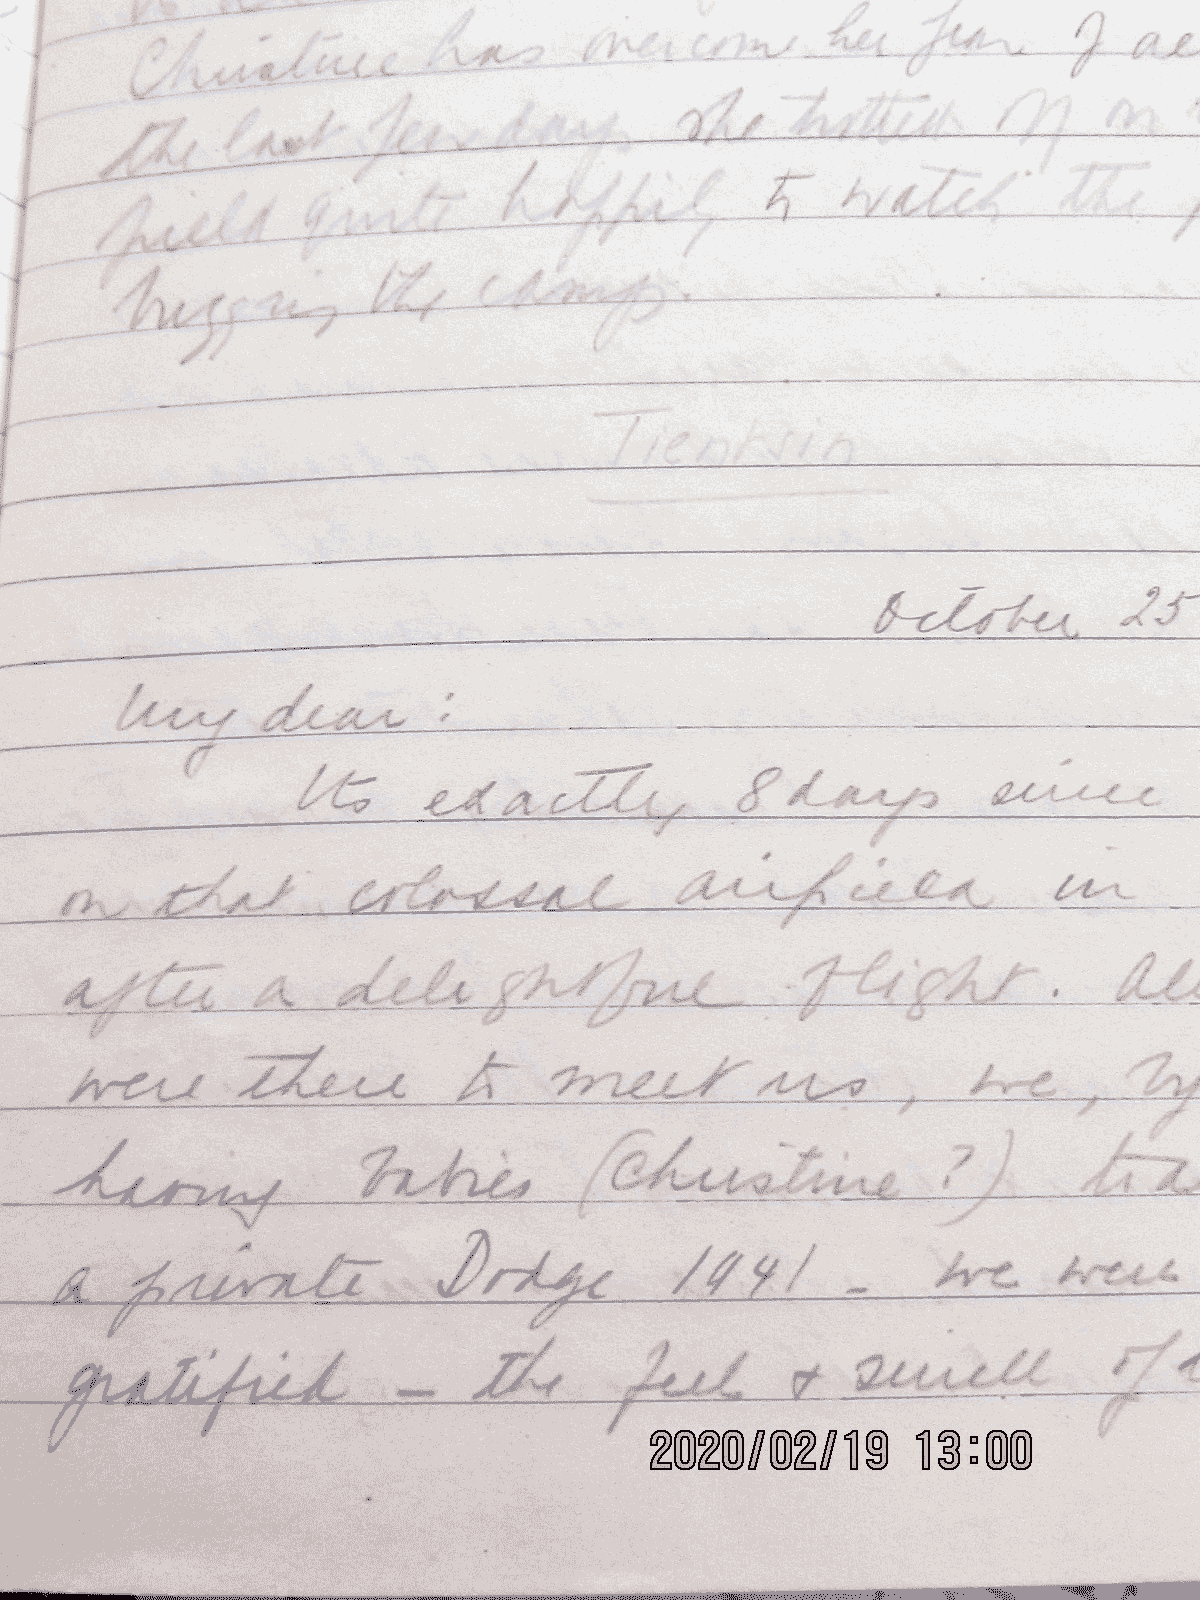 Christine has overcome her fear of ae
the last few days she trotted off on
field quite happily to watch the
the camp.
Tientsin
October 25
My dear:
Its exactly 8 days since
on that colossal airfield in
after a delightful flight. All
were there to meet us, we, by
having babies (Christine?) tra
a private Dodge 1941 - we were
gratified - the feel & smell of
2020/02/19 13:00